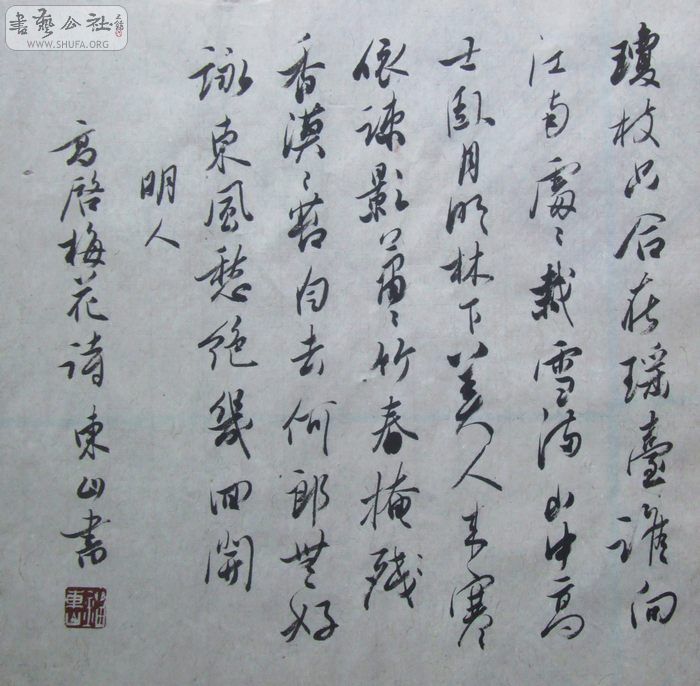 書藝公社
WWW.SHUFA.ORG
瓊枝只合在瑶臺誰向
江南處〻栽雪滿山中高
士臥月明林下美人来寒
依疎影蕭〻竹春掩残
香漠〻苔自去何郎無好
詠東風愁絶幾回開
明人
高啓梅花诗東山書